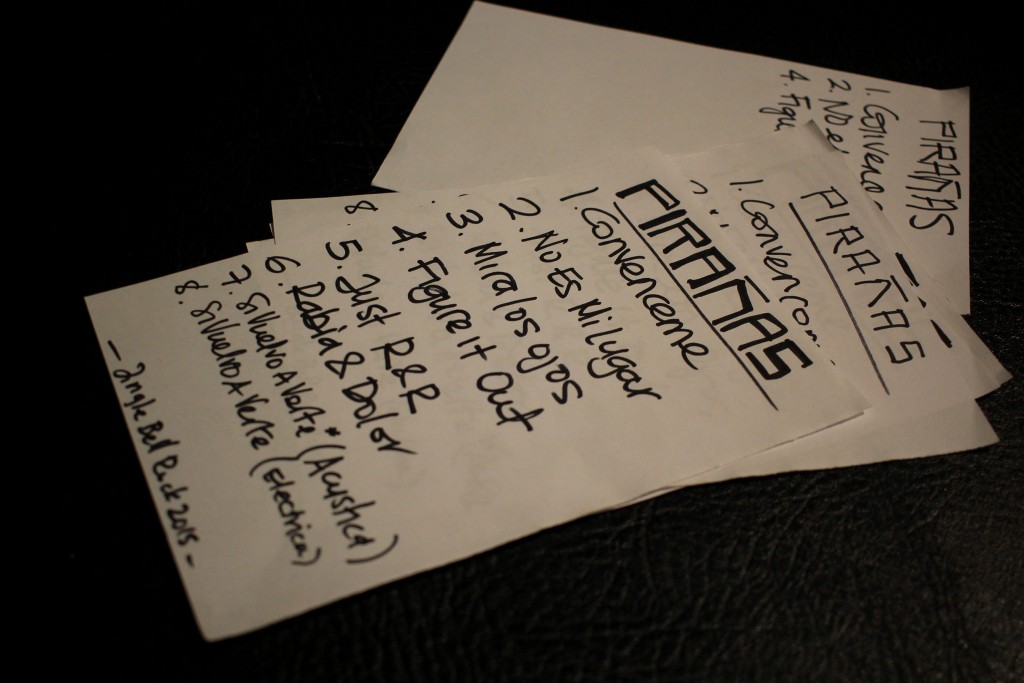 PIRAÑAS
1. Convenceme
2. No Es Mi lugar
3. Mira los ojos
4. Figure it Out
5. Just R&R
6. Rabia & Dolor
7. Si Vuelvo A Verte * (Acustica)
8. Si Vuelvo A Verte (Electrica)
- Jingle Bel Rock 2015 -
8.
PIRAÑAS
1. Convencem
PIRAÑAS
1. Convence
2. No e
4. Figu